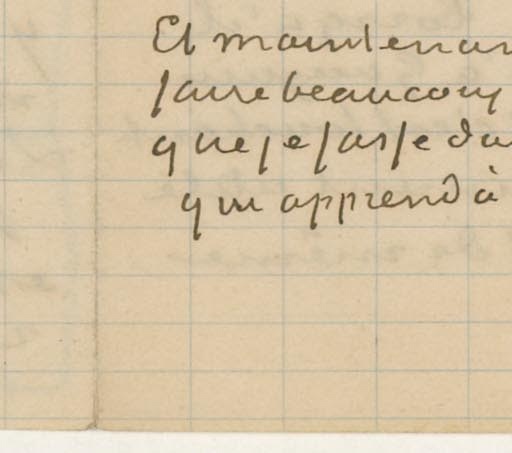 Et maintenan
faire beaucoup
que je fasse du
qui apprend à